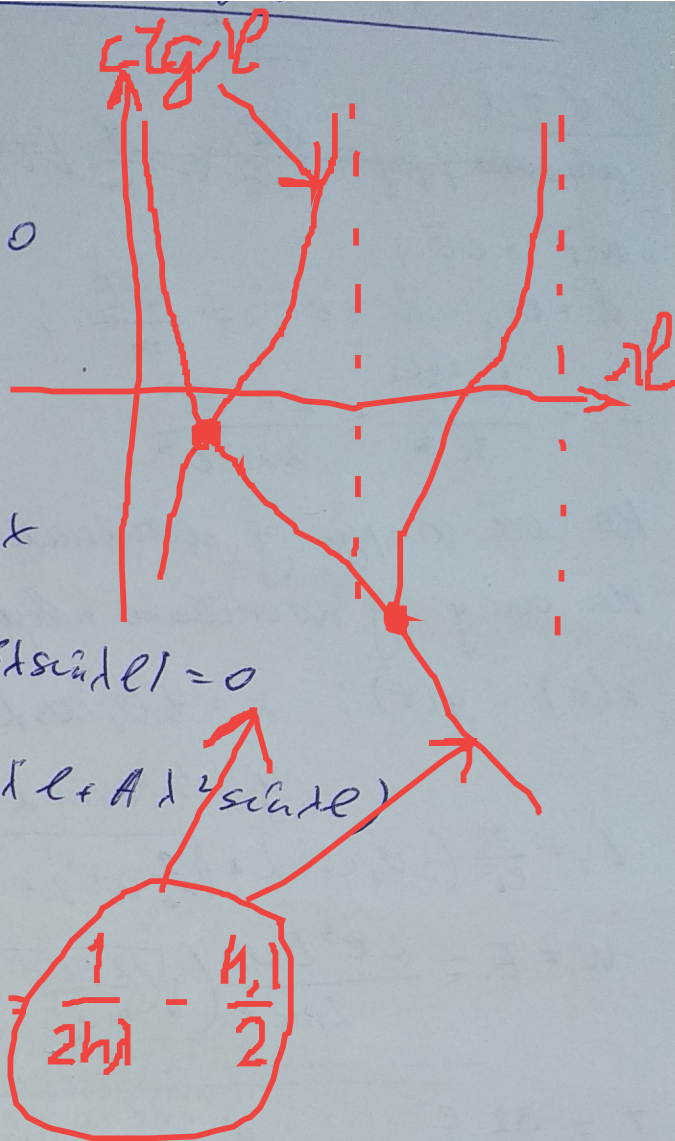 ctgλl
0
λl
x
λsinλl) = 0
λl + Aλ²sinλl)
= 1/2hλ - hλ/2